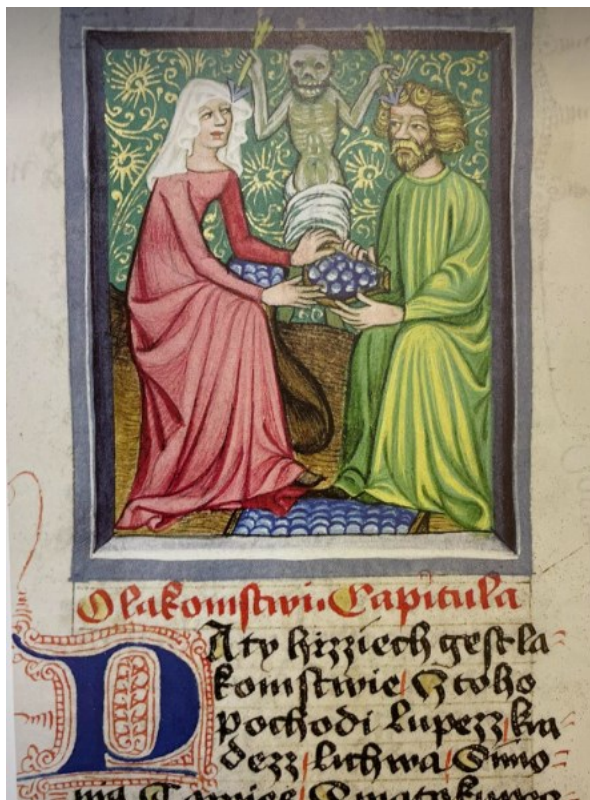 O lakomstwi. Capitula
Paty hrzziech gest la-
komstwie / Z toho
pochodi Lupezz / kra-
dezz / lichwa / Simo-